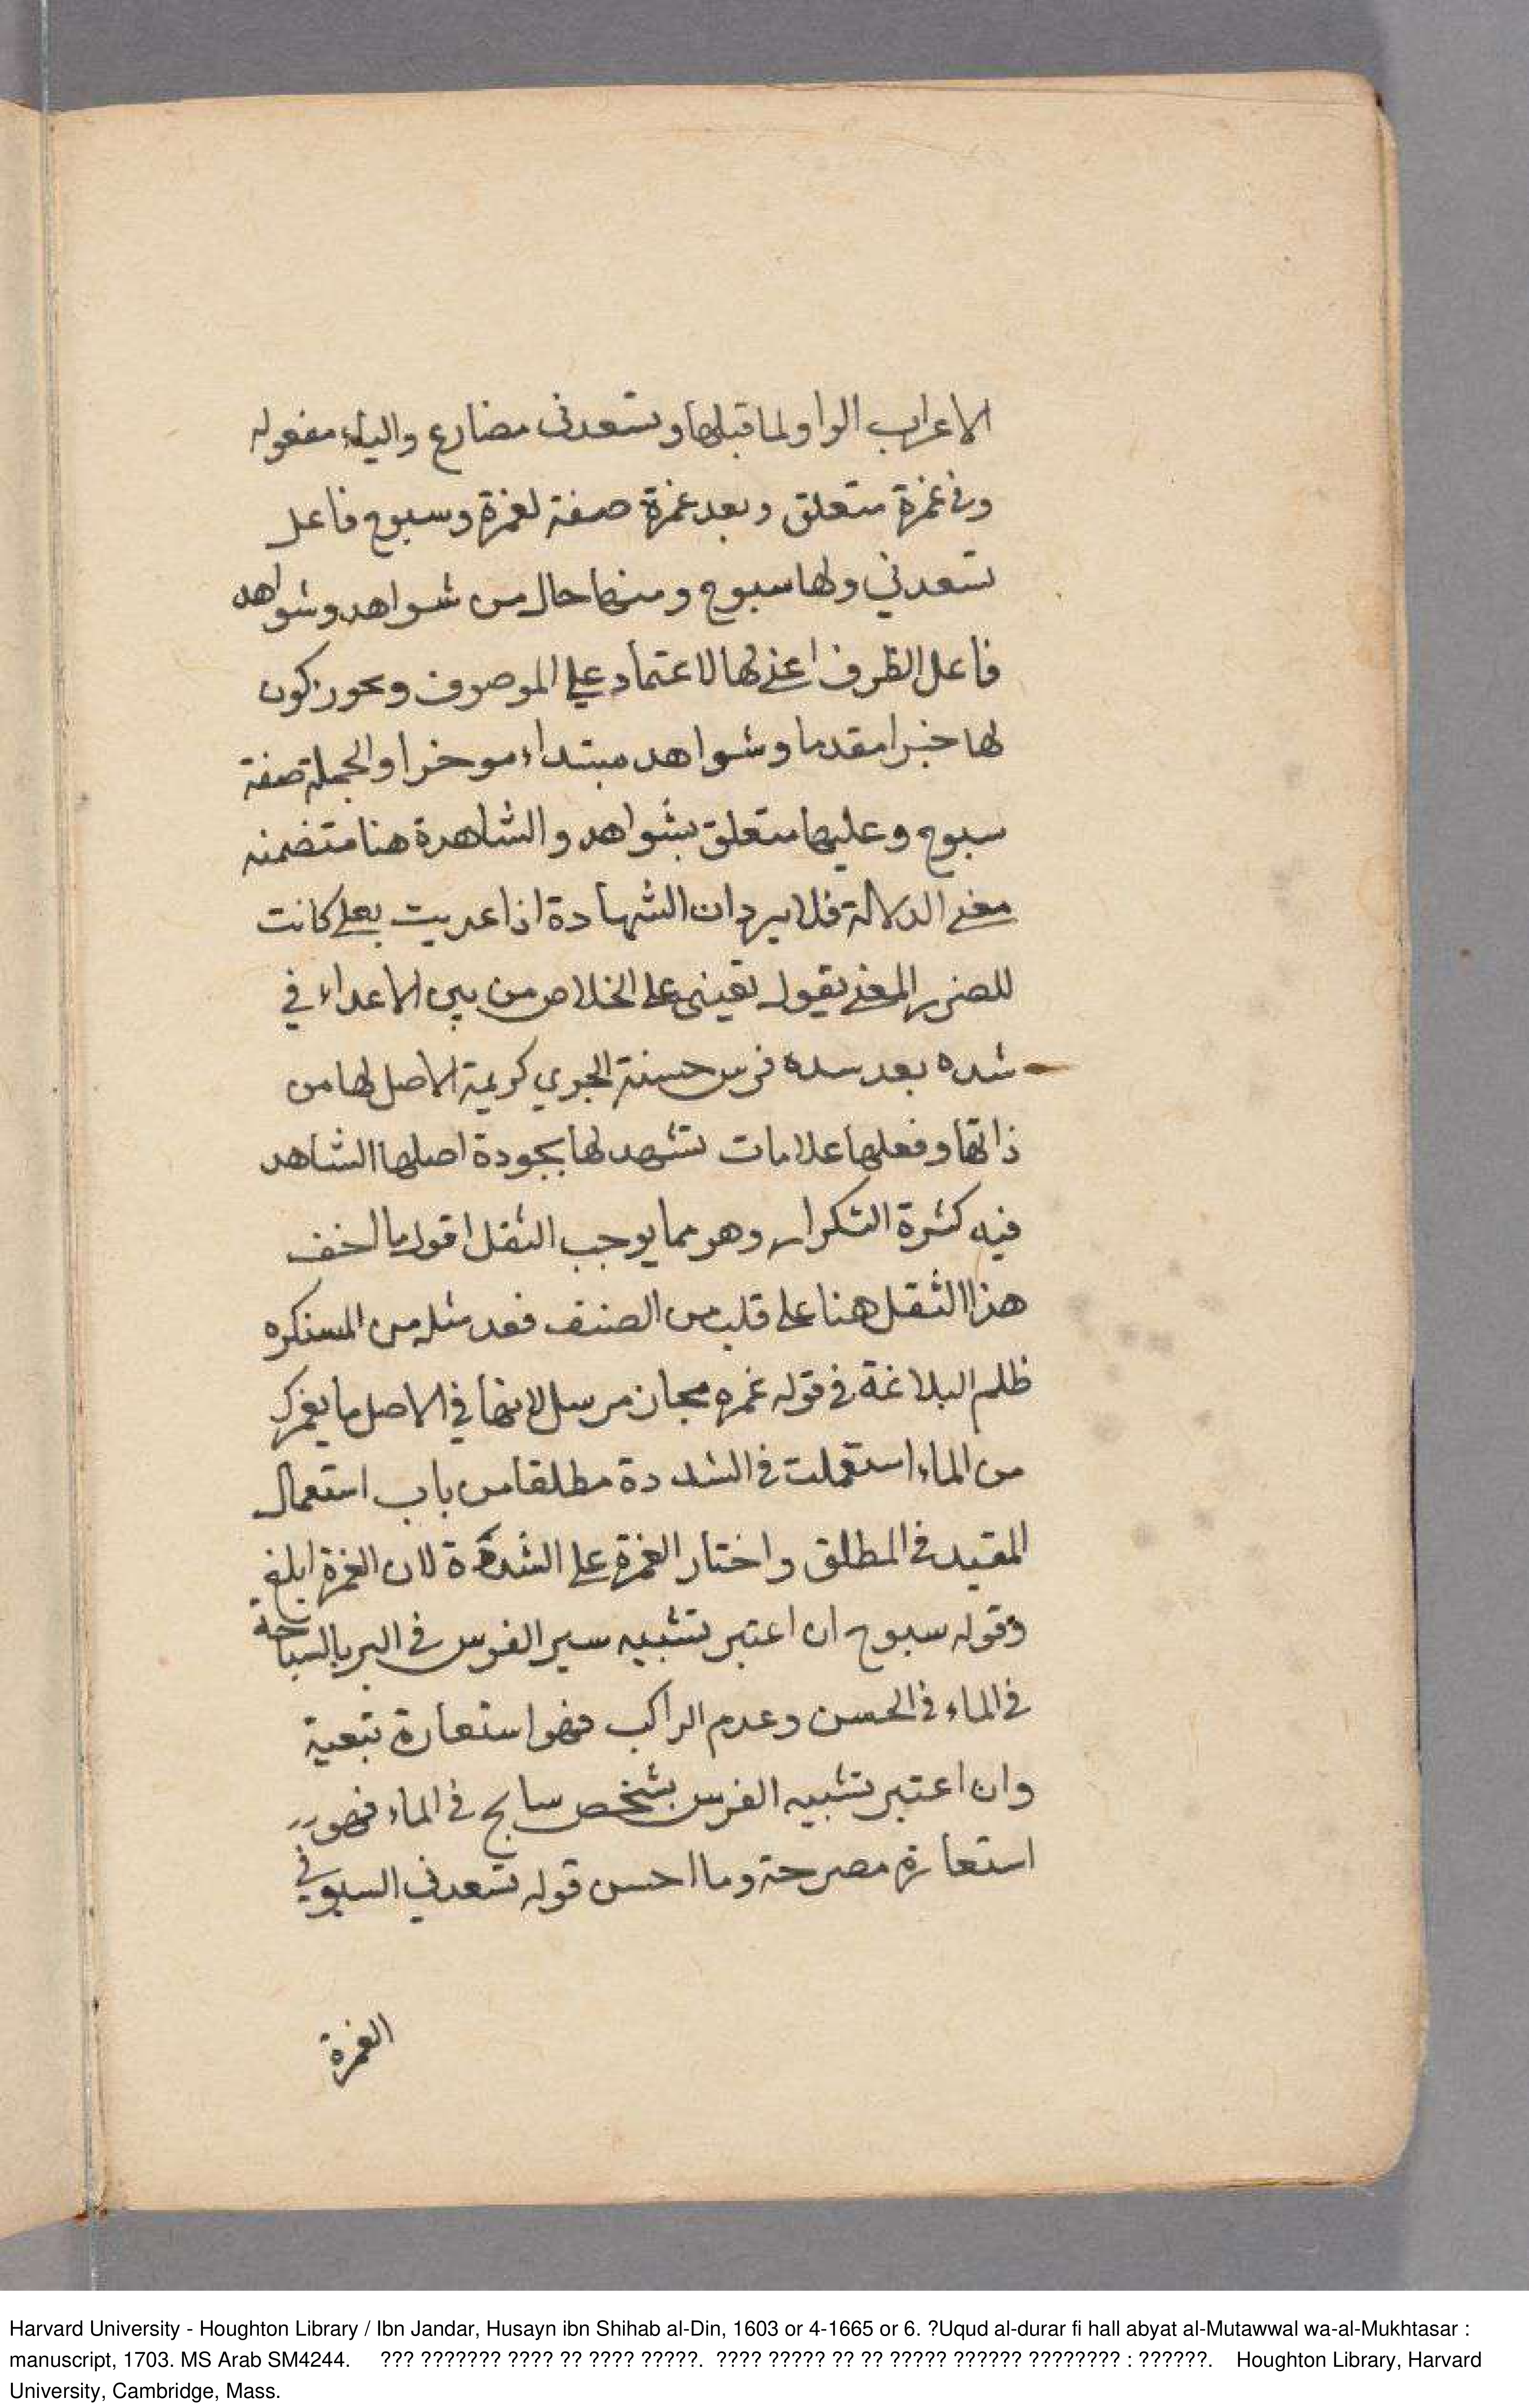 الاعراب الواو لما قبلها وتسعدنى مضارع والياء مفعوله
وفى غمرة متعلق وبعد غمرة صفة لغمرة وسبوح فاعل
تسعدني ولها سبوح ومنها حال من شواهد وشواهد
فاعل الظرف اعنے لها لاعتماد علي الموصوف ويجوز كون
لها خبرا مقدما وشواهد مبتداء موخرا والجملة صفة
سبوح وعليها متعلق بشواهد والشاهدة هنا متضمنه
معنے الدلالة فلا يرد ان الشهادة اذا عديت بعلے كانت
للضرر المعنے يقول تعيننى على الخلاص من بين الاعداء في
شده بعد سده فرس حسنة الجري كريمة الاصل لها من
ذاتها وفعلها علامات تشهد لها بجودة اصلها الشاهد
فيه كثرة التكرار وهو مما يوجب الثقل اقول ما اخف
هذا الثقل هنا على قلب من الصنف فعد مثله من المستكره
ظلم البلاغة فى قوله غمره مجاز مرسل لانها في الاصل ما يغمرك
من الماء استعملت فى الشددة مطلقا من باب استعمال
المقيد فى المطلق واختار الغمرة على الشدة لان الغمرة ابلغ
وقوله سبوح ان اعتبر تشبيه سير الفرس فى البر بالسباحة
فى الماء فى الحسن وعدم الراكب فهو استعارة تبعية
وان اعتبر تشبيه الفرس بشخص سابح فى الماء فهو
استعارة مصرحة وما احسن قوله تسعدني السبوح في
الغمرة
Harvard University - Houghton Library / Ibn Jandar, Husayn ibn Shihab al-Din, 1603 or 4-1665 or 6. ?Uqud al-durar fi hall abyat al-Mutawwal wa-al-Mukhtasar :
manuscript, 1703. MS Arab SM4244. ??? ??????? ???? ?? ???? ?????. ???? ????? ?? ?? ????? ?????? ???????? : ??????. Houghton Library, Harvard
University, Cambridge, Mass.